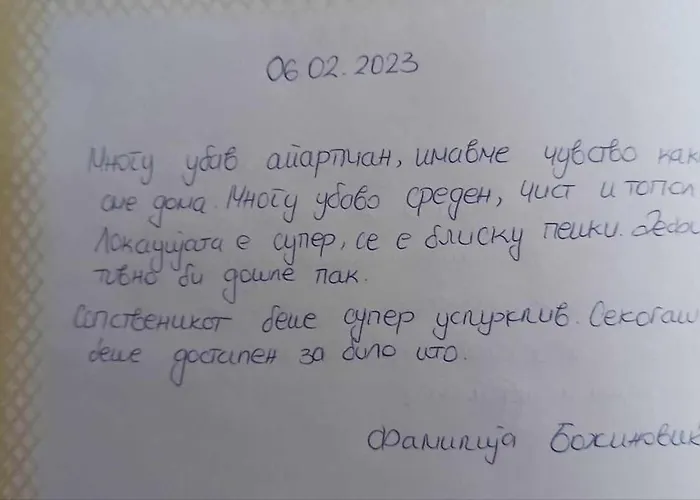 06 02. 2023
Многу убав апартман, имавме чувство как
сме дома. Многу убаво среден, чист и топол
Локацијата е супер, се е блиску пешки.
тивно би дошле пак.
Сопственикот беше супер услужлив. Секогаш
беше достапен за било што.
Фамилија Божиновиќ